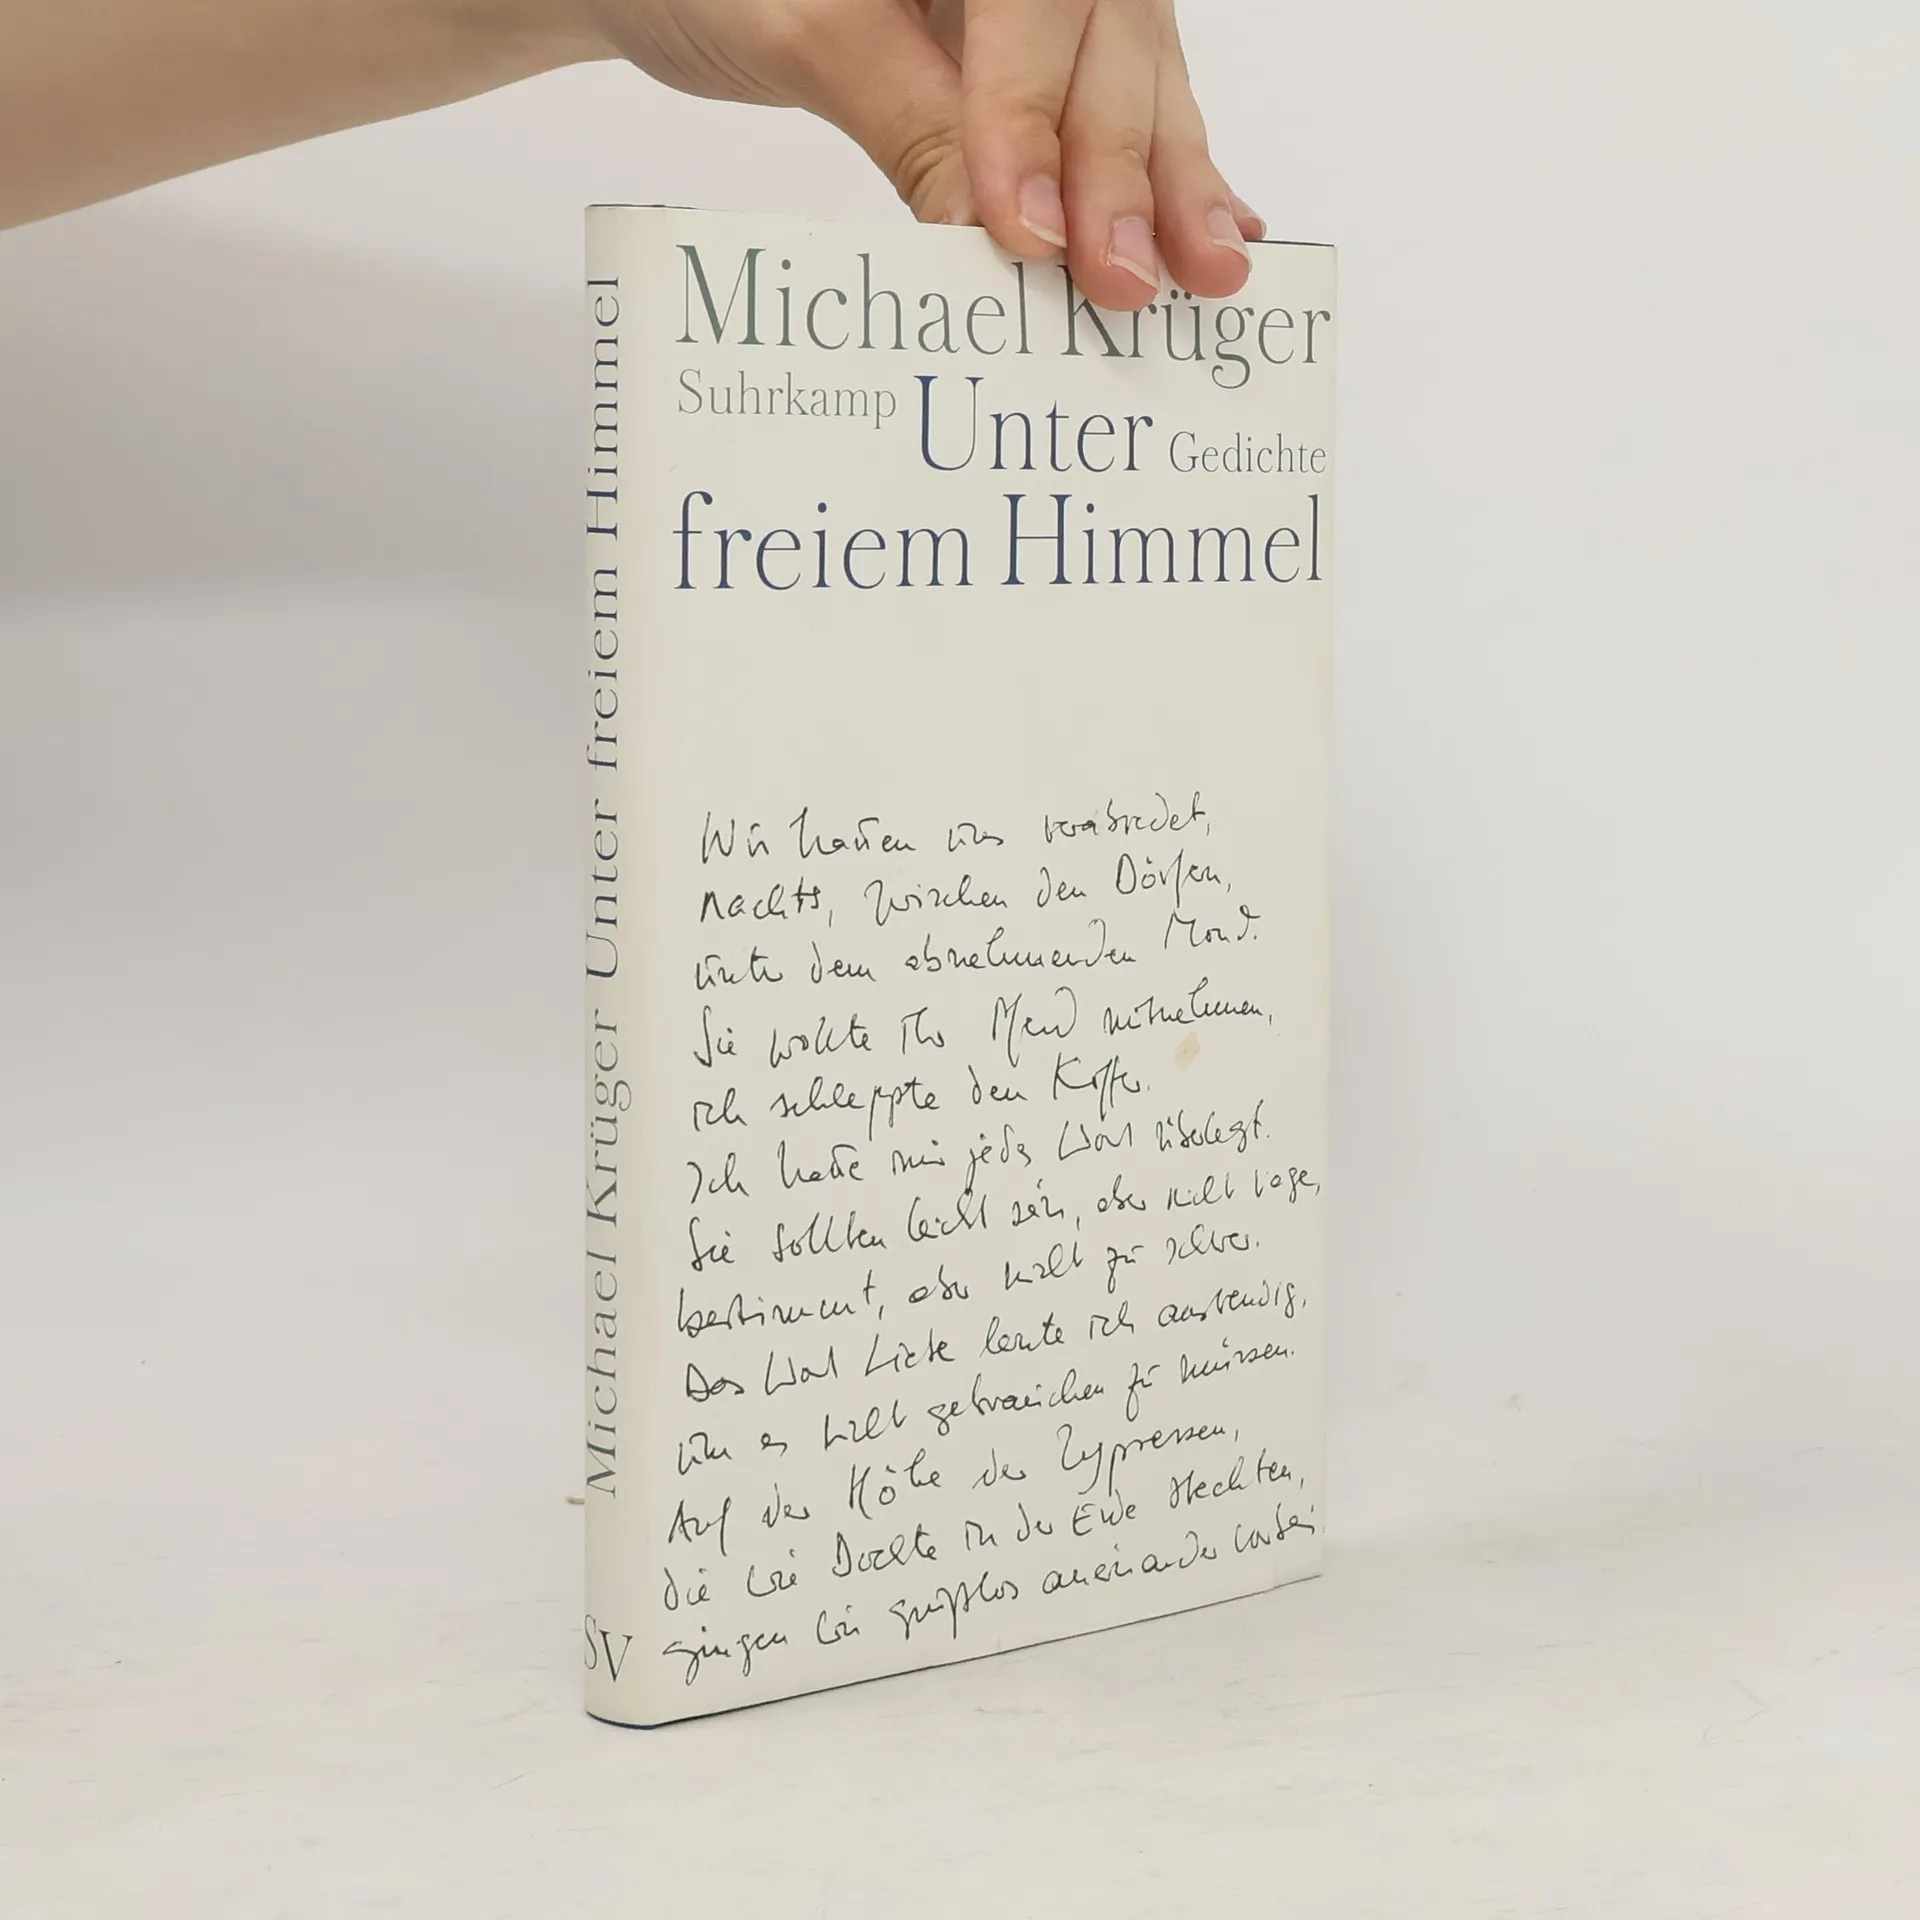 Michael Krüger
Suhrkamp Unter Gedichte
freiem Himmel
Wir hatten uns verabredet,
nachts, zwischen den Dörfern,
unter dem abnehmenden Mond.
Sie wollte Ihr Pferd mitnehmen,
ich schleppte den Koffer.
Ich hatte mir jedes Wort überlegt.
Sie sollten leicht sein, aber nicht vage,
bestimmt, aber nicht zu schwer.
Das Wort Liebe lernte ich auswendig,
um es nicht gebrauchen zu müssen.
Auf der Höhe der Zypressen,
die wie Dochte in der Erde steckten,
gingen wir grußlos aneinander vorbei
Michael Krüger Unter freiem Himmel
SV